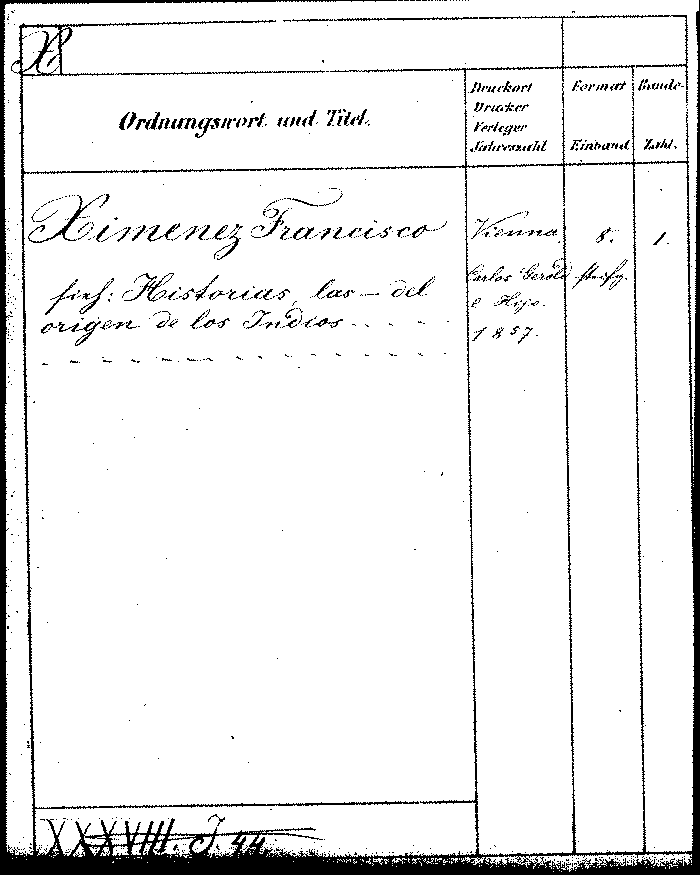 X
Ordnungswort und Titel.
Druckort
Drucker
Verleger
Jahreszahl
Format
Einband
Bände-
Zahl.
Ximenez Francisco
sieh: Historias, las — del
origen de los Indios
Vienna,
Carlos Gerold
e Hijo.
1857.
8.
steifg.
1.
XXXVIII. J. 44.